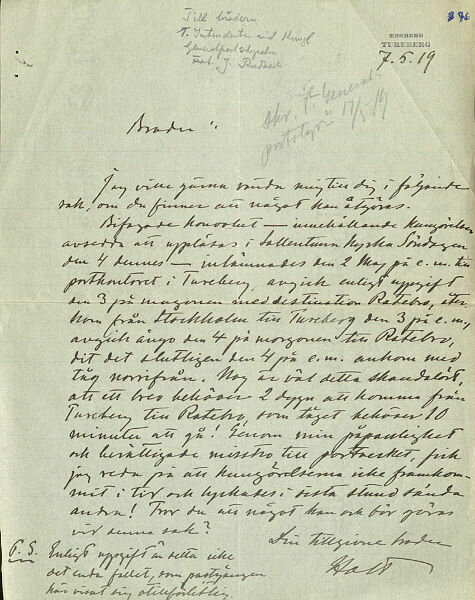 Till
T. Intendenten vid Kungl
Generalpoststyrelsen
J.
EDSBERG
TUREBERG
7.5.19
skr. t. General-
postst.
17/5 19
Broder!
Jag ville gärna vända mig till dig i följande
sak, om du finner att något kan åtgöras.
Bifogade konvolut — innehållande kungörelser
avsedda att uppläsas i Sollentuna kyrka Söndagen
den 4 dennes — inlämnades den 2 Maj på e.m. till
postkontoret i Tureberg, avgick enligt uppgift
den 3 på morgonen med destination Rotebro, åter-
kom från Stockholm till Tureberg den 3 på e.m,
avgick ånyo den 4 på morgonen till Rotebro,
dit det slutligen den 4 på e.m. ankom med
tåg norrifrån. Nog är väl detta skandalöst,
att ett brev behöver 2 dygn att komma från
Tureberg till Rotebro, som tåget behöver 10
minuter att gå! Genom min påpasslighet
och berättigade misstro till postverket, fick
jag reda på att kungörelserna icke framkom-
mit i tid och lyckades i sista stund sända
andra! Tror du att något kan och bör göras
vid denna sak?
Din tillgivne broder
P.S. Enligt uppgift är detta icke
det enda fallet, som postgången
här visat sig otillförlitlig.